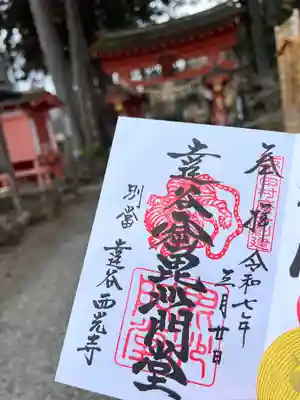 奉拝
令和七年
三月廿日
達谷窟毘沙門堂
別當
達谷西光寺